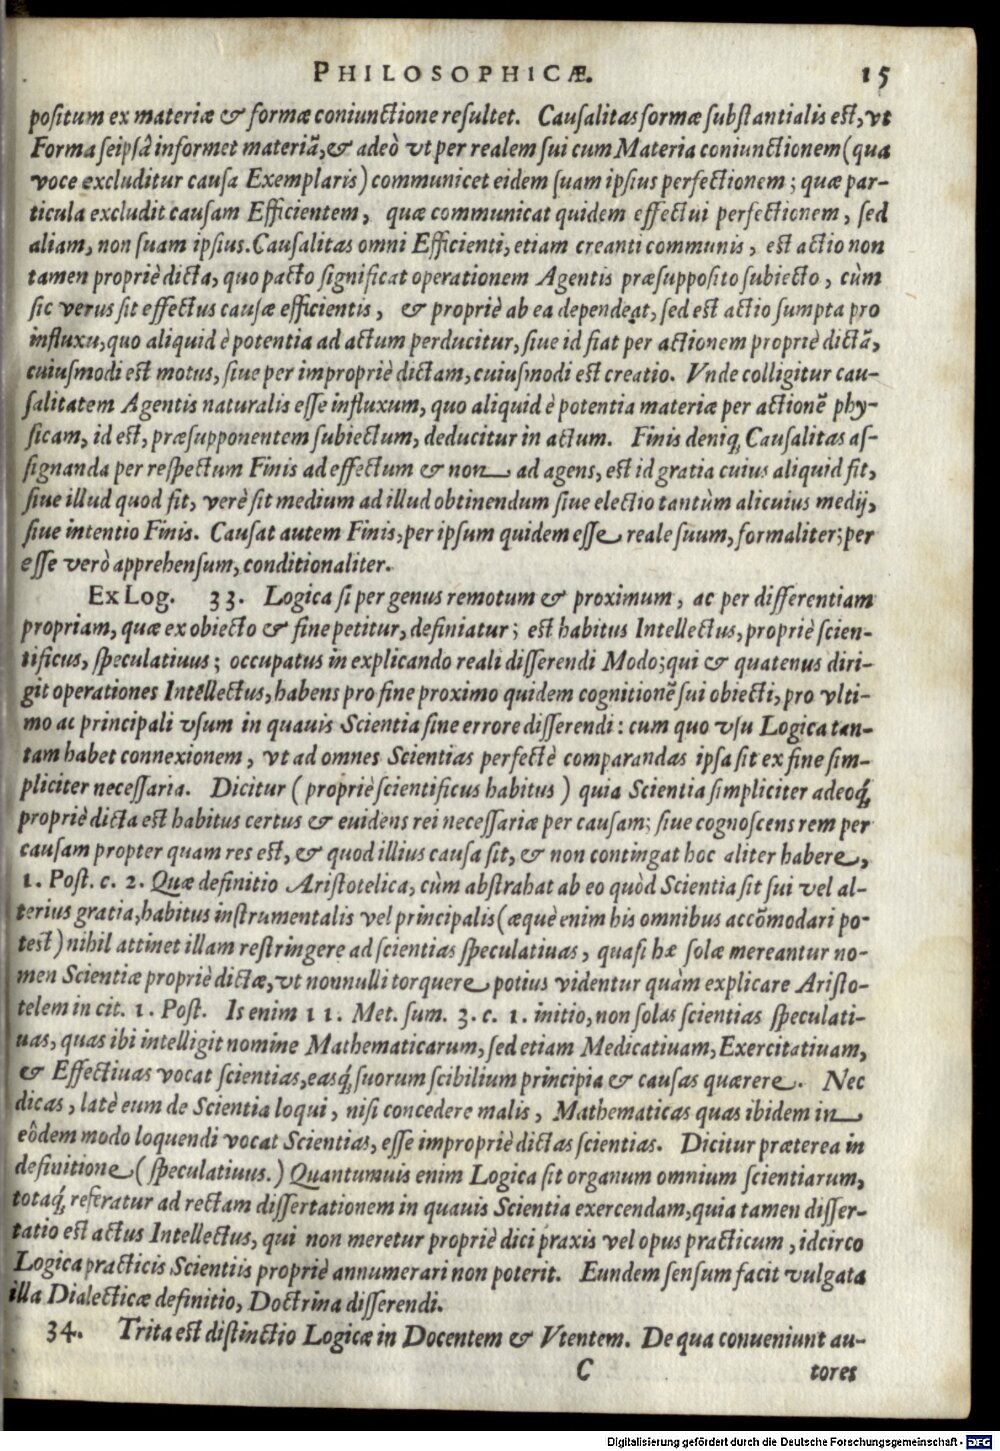 PHILOSOPHICÆ. 15
positum ex materiæ & formæ coniunctione resultet. Causalitas formæ substantialis est, vt
Forma seipsâ informet materiã, & adeò vt per realem sui cum Materia coniunctionem (qua
voce excluditur causa Exemplaris) communicet eidem suam ipsius perfectionem; quæ par-
ticula excludit causam Efficientem, quæ communicat quidem effectui perfectionem, sed
aliam, non suam ipsius. Causalitas omni Efficienti, etiam creanti communis, est actio non
tamen propriè dicta, quo pacto significat operationem Agentis præsupposito subiecto, cùm
sic verus sit effectus causæ efficientis, & propriè ab ea dependeat, sed est actio sumpta pro
influxu, quo aliquid è potentia ad actum perducitur, siue id fiat per actionem propriè dictã,
cuiusmodi est motus, siue per impropriè dictam, cuiusmodi est creatio. Vnde colligitur cau-
salitatem Agentis naturalis esse influxum, quo aliquid è potentia materiæ per actionẽ phy-
sicam, id est, præsupponentem subiectum, deducitur in actum. Finis deniq, Causalitas as-
signanda per respectum Finis ad effectum & non ad agens, est id gratia cuius aliquid fit,
siue illud quod fit, verè sit medium ad illud obtinendum siue electio tantùm alicuius medij,
siue intentio Finis. Causat autem Finis, per ipsum quidem esse reale suum, formaliter; per
esse verò apprehensum, conditionaliter.
Ex Log. 33. Logica si per genus remotum & proximum, ac per differentiam
propriam, quæ ex obiecto & fine petitur, definiatur; est habitus Intellectus, propriè scien-
tificus, speculatiuus; occupatus in explicando reali disserendi Modo; qui & quatenus diri-
git operationes Intellectus, habens pro fine proximo quidem cognitionẽ sui obiecti, pro vlti-
mo ac principali vsum in quauis Scientia sine errore disserendi: cum quo vsu Logica tan-
tam habet connexionem, vt ad omnes Scientias perfectè comparandas ipsa sit ex fine sim-
pliciter necessaria. Dicitur (propriè scientificus habitus) quia Scientia simpliciter adeoq́,
propriè dicta est habitus certus & euidens rei necessariæ per causam; siue cognoscens rem per
causam propter quam res est, & quod illius causa sit, & non contingat hoc aliter habere,
1. Post. c. 2. Quæ definitio Aristotelica, cùm abstrahat ab eo quòd Scientia sit sui vel al-
terius gratia, habitus instrumentalis vel principalis (æquè enim his omnibus accõmodari po-
test) nihil attinet illam restringere ad scientias speculatiuas, quasi hæ solæ mereantur no-
men Scientiæ propriè dictæ, vt nonnulli torquere potius videntur quàm explicare Aristo-
telem in cit. 1. Post. Is enim 11. Met. sum. 3. c. 1. initio, non solas scientias speculati-
uas, quas ibi intelligit nomine Mathematicarum, sed etiam Medicatiuam, Exercitatiuam,
& Effectiuas vocat scientias, easq́, suorum scibilium principia & causas quærere. Nec
dicas, latè eum de Scientia loqui, nisi concedere malis, Mathematicas quas ibidem in
eôdem modo loquendi vocat Scientias, esse impropriè dictas scientias. Dicitur præterea in
definitione (speculatiuus.) Quantumuis enim Logica sit organum omnium scientiarum,
totaq́, referatur ad rectam dissertationem in quauis Scientia exercendam, quia tamen disser-
tatio est actus Intellectus, qui non meretur propriè dici praxis vel opus practicum, idcirco
Logica practicis Scientiis propriè annumerari non poterit. Eundem sensum facit vulgata
illa Dialecticæ definitio, Doctrina disserendi.
34. Trita est distinctio Logicæ in Docentem & Vtentem. De qua conueniunt au-
C tores
Digitalisierung gefördert durch die Deutsche Forschungsgemeinschaft - DFG